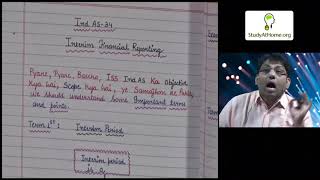 Ind AS-34
Interim Financial Reporting
Pyare, Pyare, Baccho, ISS Ind AS Ka Objective
Kya hai, Scope Kya hai, ye Samajhne se Pehle,
we should understand some Important terms
and points.
Term 1st: Interim Period
Interim period
StudyAtHome.org